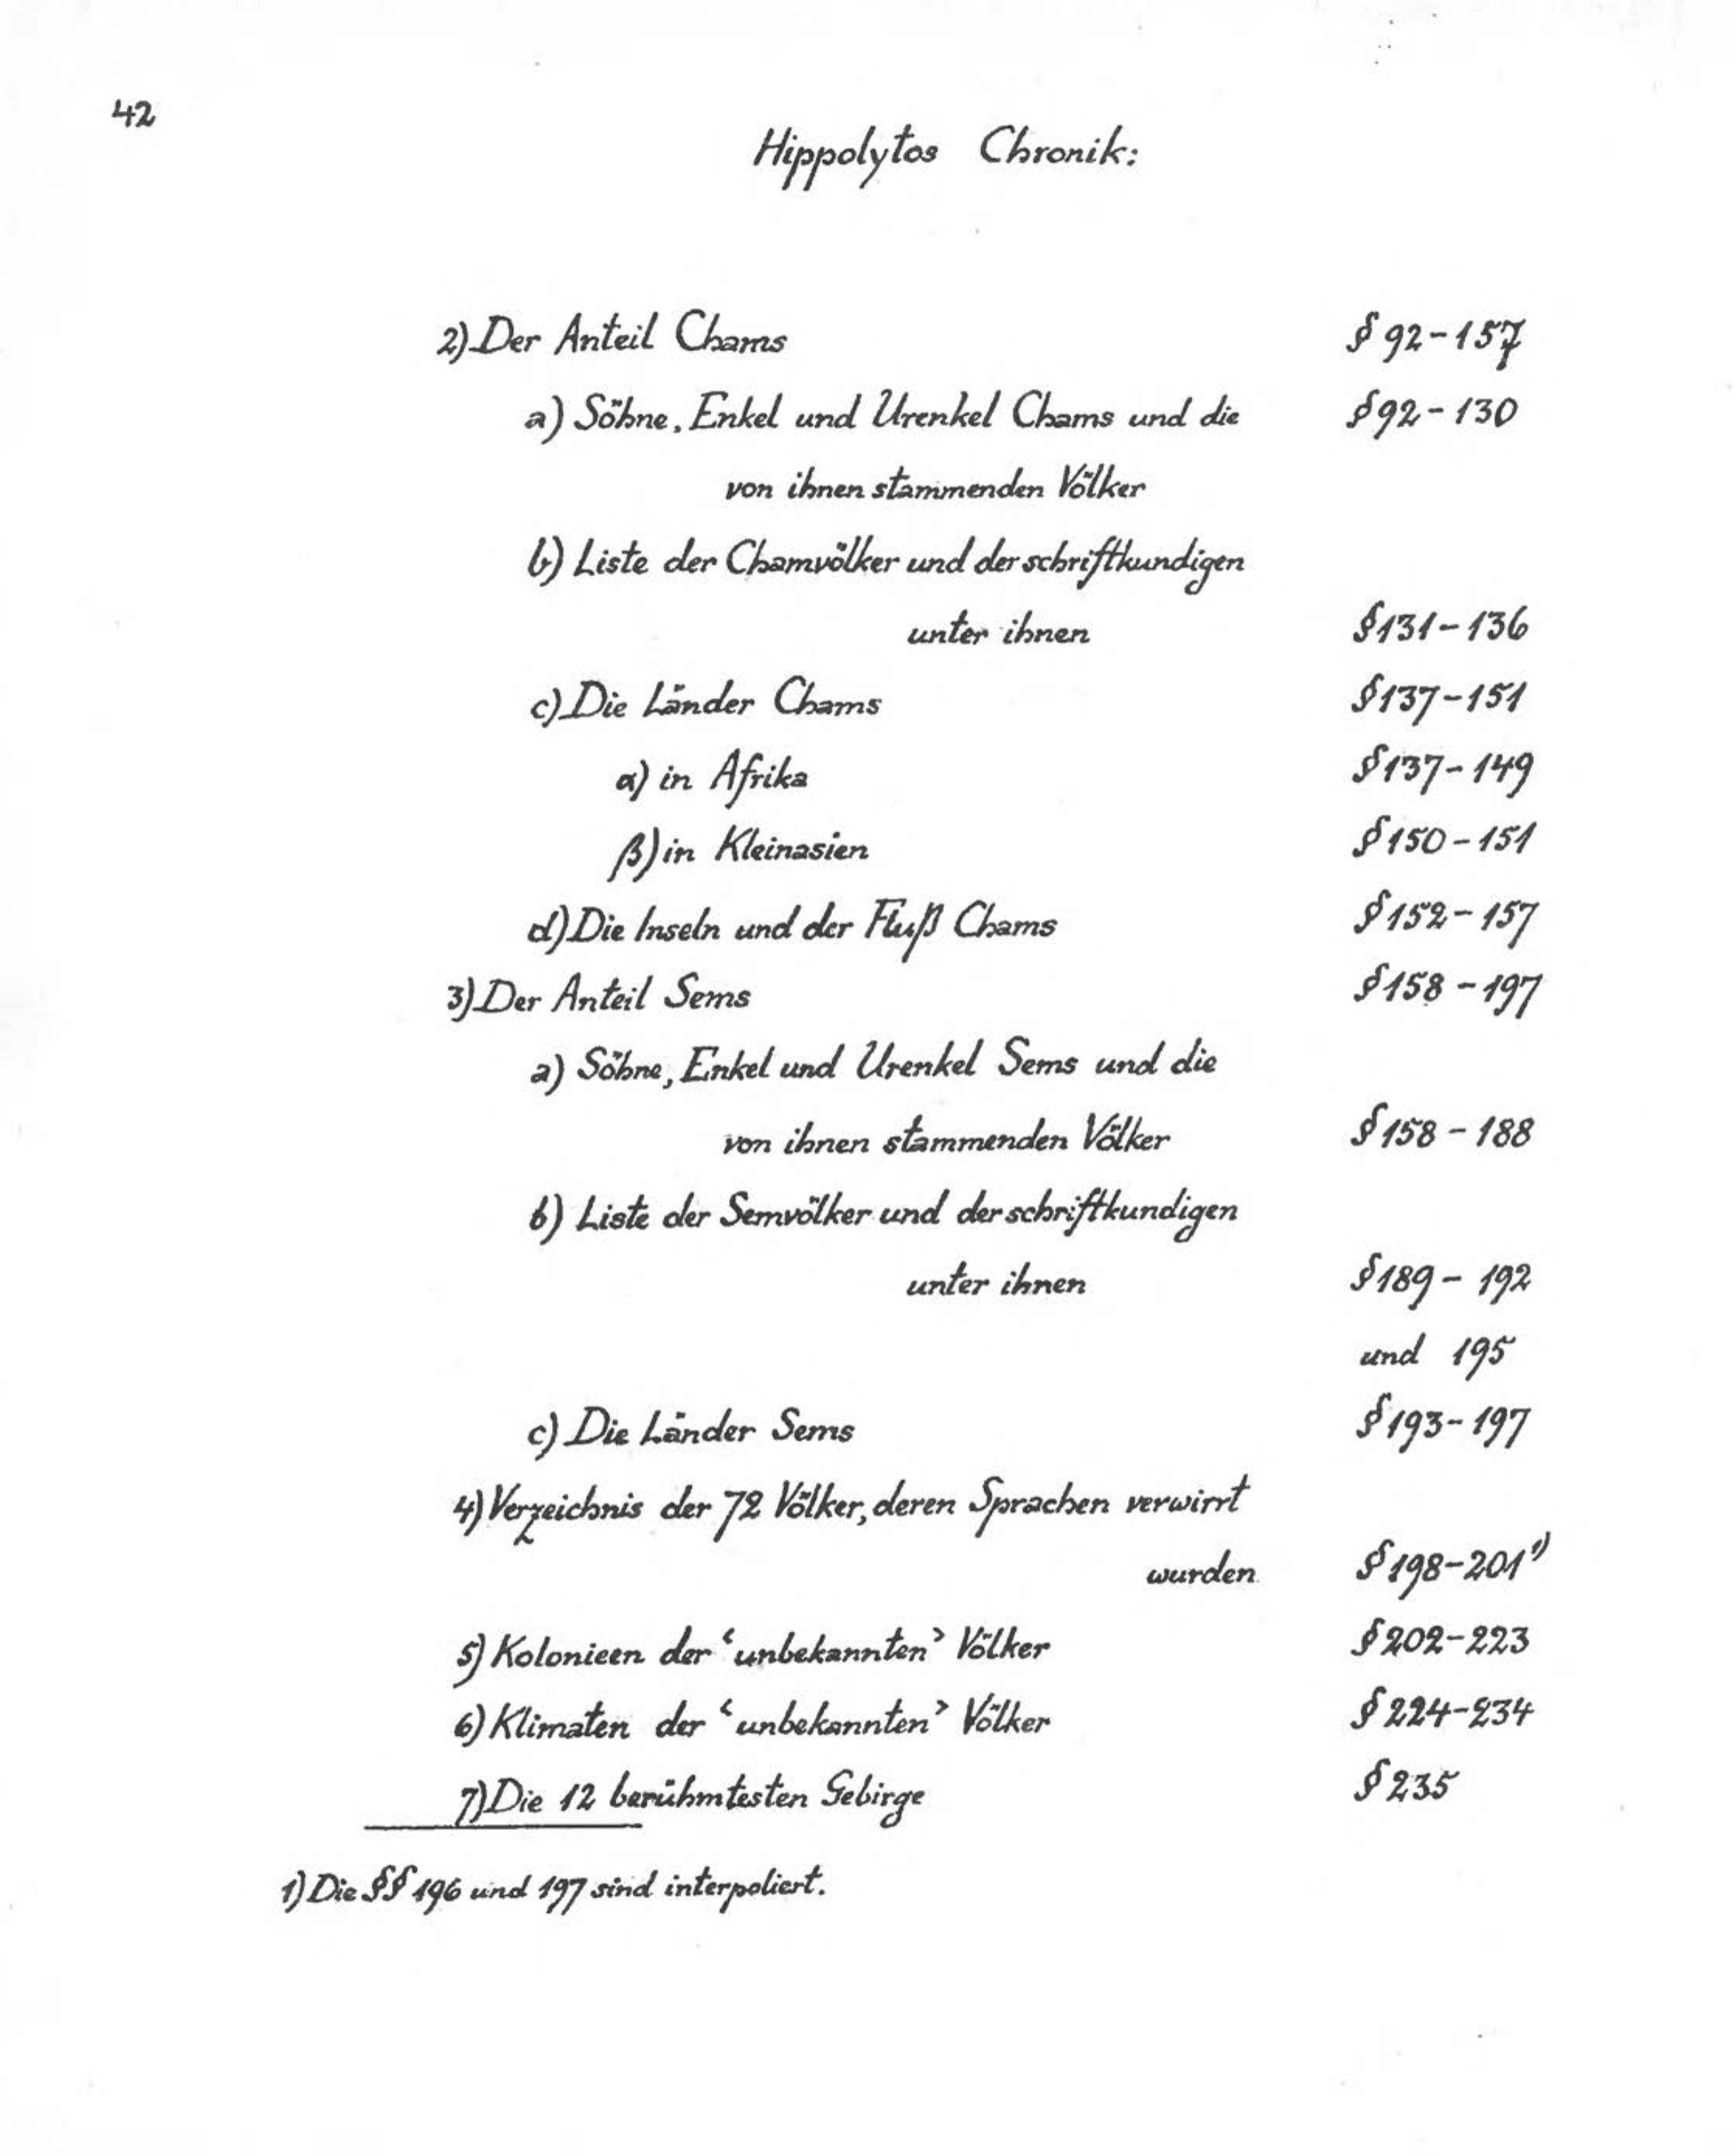 42
Hippolytos Chronik:
2) Der Anteil Chams § 92-157
a) Söhne, Enkel und Urenkel Chams und die § 92-130
von ihnen stammenden Völker
b) Liste der Chamvölker und der schriftkundigen
unter ihnen § 131-136
c) Die Länder Chams § 137-151
α) in Afrika § 137-149
β) in Kleinasien § 150-151
d) Die Inseln und der Fluß Chams § 152-157
3) Der Anteil Sems § 158-197
a) Söhne, Enkel und Urenkel Sems und die
von ihnen stammenden Völker § 158-188
b) Liste der Semvölker und der schriftkundigen
unter ihnen § 189-192
und 195
c) Die Länder Sems § 193-197
4) Verzeichnis der 72 Völker, deren Sprachen verwirrt
wurden § 198-201¹)
5) Kolonieen der ‘unbekannten’ Völker § 202-223
6) Klimaten der ‘unbekannten’ Völker § 224-234
7) Die 12 berühmtesten Gebirge § 235
1) Die §§ 196 und 197 sind interpoliert.